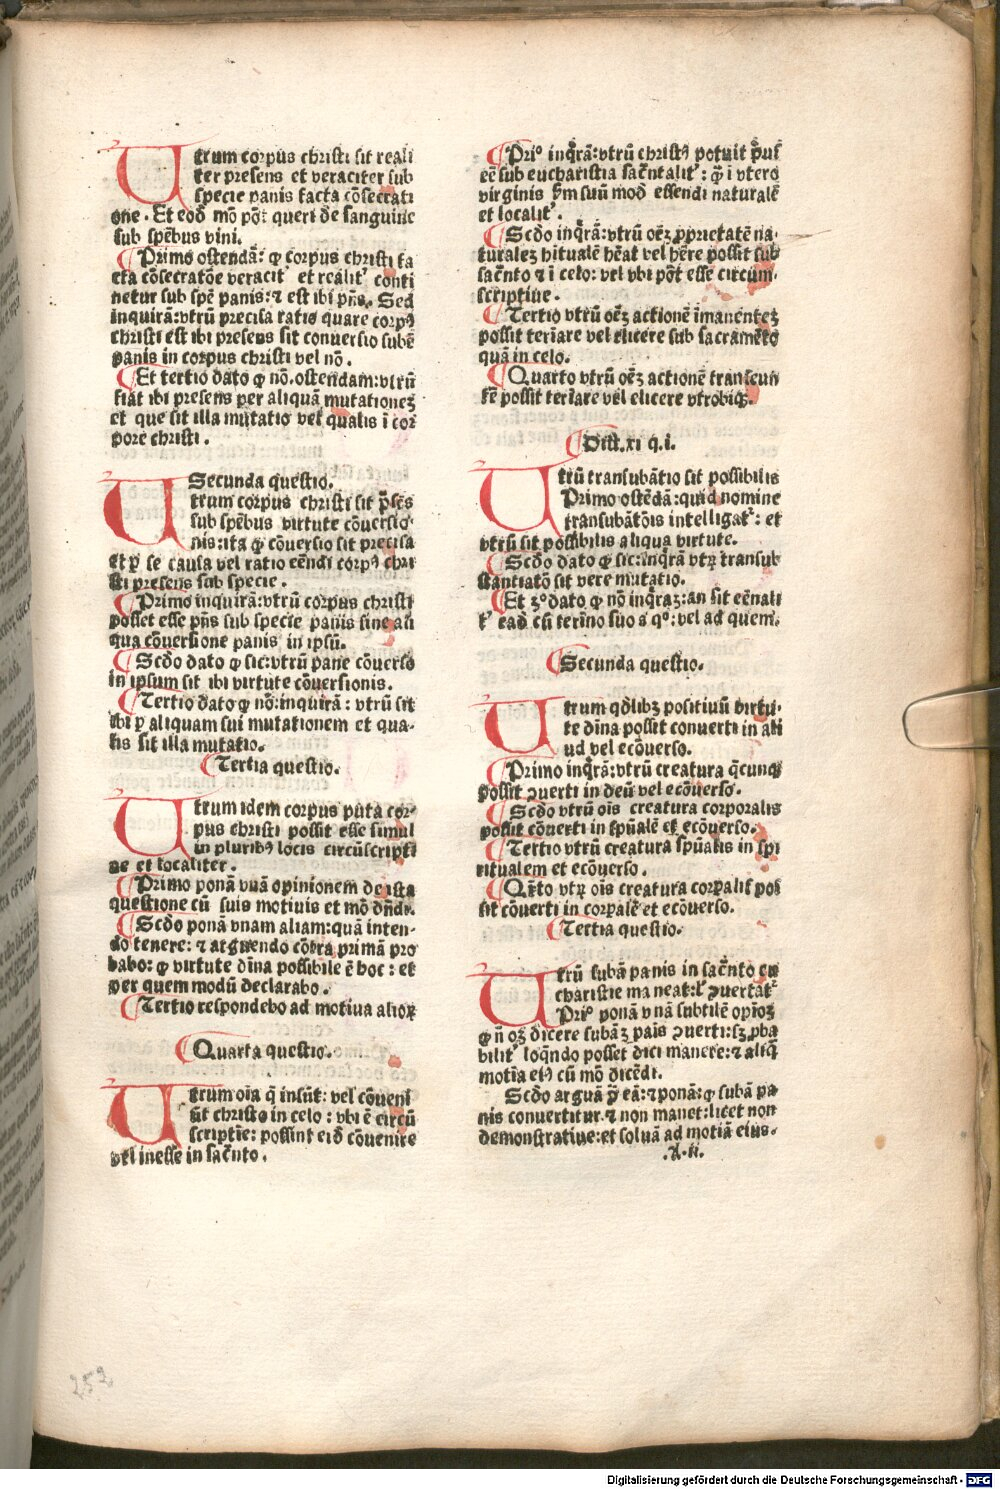 Utrum corpus christi sit reali
ter presens et veraciter sub
specie panis facta cōsecrati
one. Et eod̄ mō pōt queri de sanguine
sub spēbus vini.
Primo ostendā: ꝙ corpus christi fa
cta cōsecratōe veracit̾ et realit̾ conti
netur sub spē panis: ⁊ est ibi p̄ns. Sed
inquirā: vtrū precisa ratio quare corpꝰ
christi est ibi presens sit conuersio subē
panis in corpus christi vel nō.
Et tertio dato ꝙ nō. ostendam: vtrū
fiat ibi presens per aliquā mutationeʒ
et que sit illa mutatio vel qualis ī cor
pore christi.
Secunda questio.
Utrum corpus christi sit p̄sēs
sub spēbus virtute cōuersio
nis: ita ꝙ cōuersio sit precisa
et ꝑ se causa vel ratio eēndi corpꝰ chri
sti presens sub specie.
Primo inquirā: vtrū corpus christi
posset esse p̄ns sub specie panis sine ali
qua cōuersione panis in ipsū.
Scd̄o dato ꝙ sic: vtrū pane cōuerso
in ipsum sit ibi virtute cōuersionis.
Tertio dato ꝙ nō: inquirā: vtrū sit
ibi ꝑ aliquam sui mutationem et qua-
lis sit illa mutatio.
Tertia questio.
Utrum idem corpus puta cor-
pus christi possit esse simul
in pluribꝰ locis circūscripti
ue et localiter.
Primo ponā vnā opinionem de ista
questione cū suis motiuis et mō dn̄di.
Scd̄o ponā vnam aliam: quā inten-
do tenere: ⁊ arguendo cōtra primā pro
babo: ꝙ virtute diīna possibile ē hoc: et
per quem modū declarabo.
Tertio respondebo ad motiua alioꝝ
Quarta questio.
Utrum oīa q̄ insūt: vel cōueni
ūt christo in celo: vbi ē circū
scriptīe: possint eid̄ cōuenire
vel inesse in sac̄nto.
Pri° inq̄rā: vtrū christꝰ potuit p̄us
eē sub eucharistia sac̄ntalit̾: q̄ ī vtero
virginis ẜm suū mod̄ essendi naturalē
et localit̾.
Scd̄o inq̄rā: vtrū oēʒ ꝓprietatē na-
turaleʒ hitualē hēat vel hēre possit sub
sac̄nto ⁊ ī celo: vel vbi pōt esse circum
scriptiue.
Tertio vtrū oēʒ actionē imanenteʒ
possit terīare vel elicere sub sacramēto
quā in celo.
Quarto vtrū oēʒ actionē transeun
tē possit terīare vel elicere vtrobiqʒ.
Dist. xi q. i.
Utrū transubātio sit possibilis
Primo ostēdā: quid nomine
transubātōis intelligat̾: et
vtrū sit possibilis aliqua virtute.
Scd̄o dato ꝙ sic: inq̄rā vtꝝ transub
stantiatō sit vere mutatio.
Et 3° dato ꝙ nō inq̄raʒ: an sit eēnali
t̾ ead̄ cū terīno suo a q°: vel ad quem.
Secunda questio.
Utrum qd̄libʒ positiuū virtu-
te diīna possit conuerti in ali
ud vel ecōuerso.
Primo inq̄rā: vtrū creatura q̄cunqʒ
possit ꝯuerti in deū vel ecōuerso.
Scd̄o vtrū oīs creatura corporalis
possit cōuerti in sp̄ualē et ecōuerso.
Tertio vtrū creatura sp̄ualis in spi
ritualem et ecōuerso.
Qrto vtꝝ oīs creatura corꝑalis pos
sit cōuerti in corꝑalē et ecōuerso.
Tertia questio.
Utrū subā panis in sac̄nto eu
charistie maneat: l̾ ꝯuertat̾
Pri° ponā vnā subtilē opīoʒ
ꝙ n̄ oʒ dicere subāʒ pais ꝯuerti: sʒ ꝓba
bilit̾ loqn̄do posset dici manere: ⁊ aliq̄
motīa eiꝰ cū mō dicēdi.
Scd̄o arguā ꝯ̄ eā: ⁊ ponā: ꝙ subā pa
nis conuertitur ⁊ non manet: licet non
demonstratiue: et soluā ad motīa eius.
.A. ii.
252
Digitalisierung gefördert durch die Deutsche Forschungsgemeinschaft - DFG